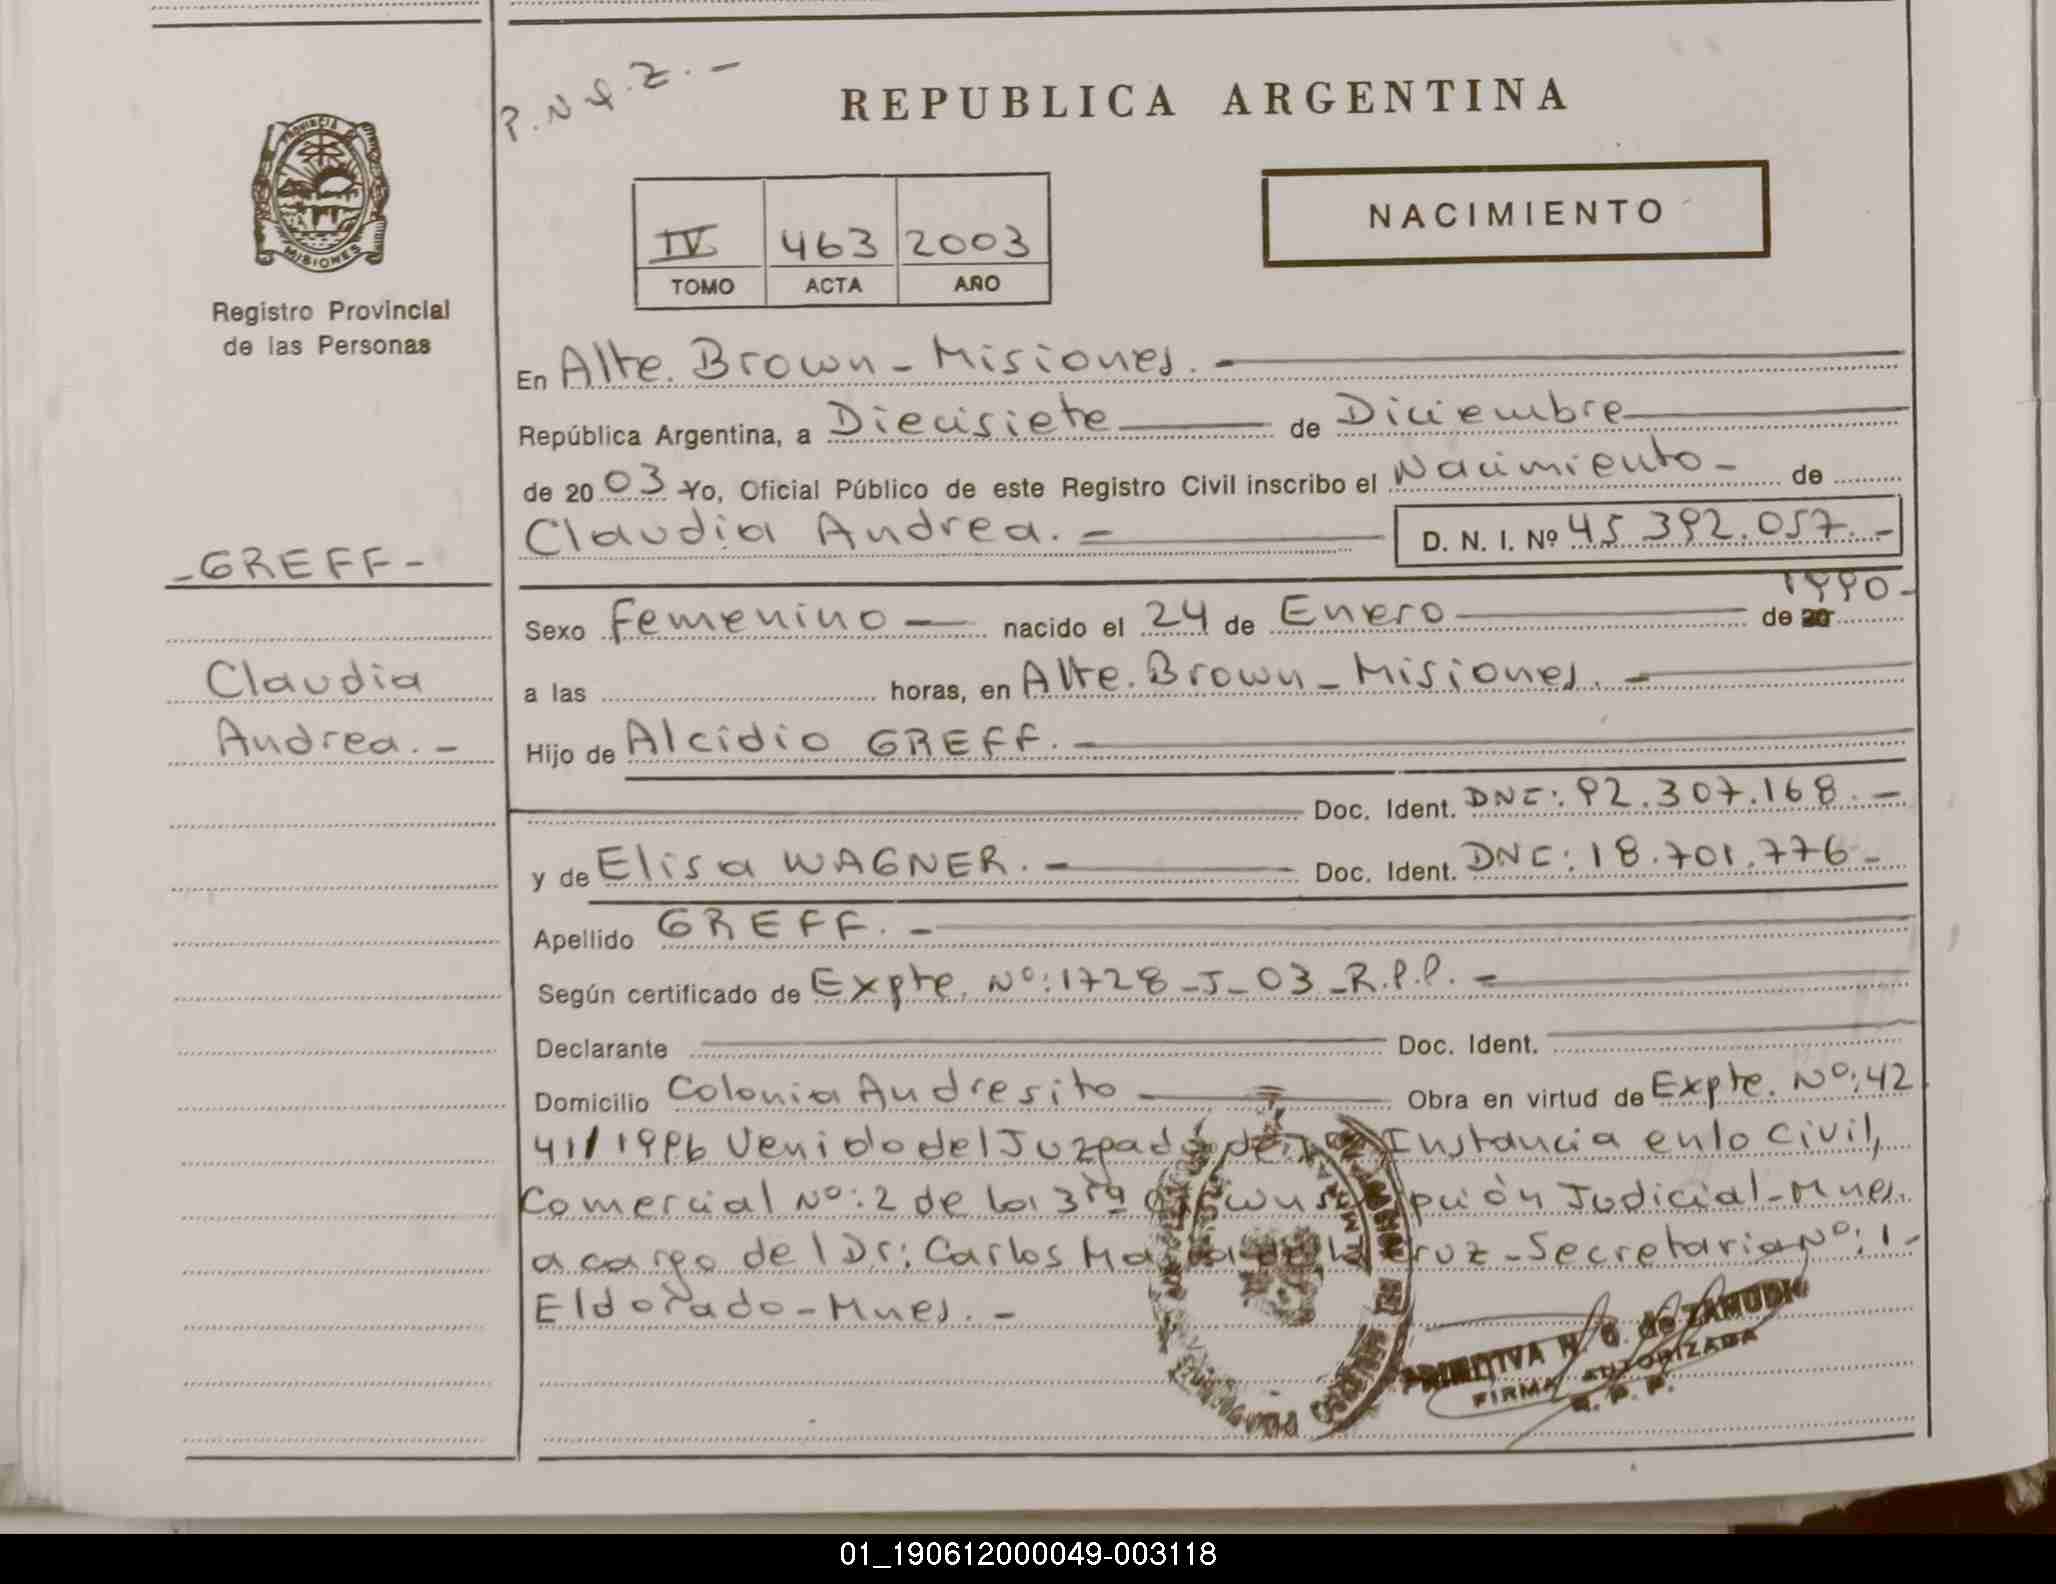 P.N.G.Z.-
REPUBLICA ARGENTINA
PROVINCIA DE
MISIONES
Registro Provincial
de las Personas
IV 463 2003
TOMO ACTA AÑO
NACIMIENTO
En Alte. Brown - Misiones. -
República Argentina, a Diecisiete de Diciembre
de 2003 Yo, Oficial Público de este Registro Civil inscribo el Nacimiento - de
Claudia Andrea. - D. N. I. Nº 45.392.057. -
- GREFF -
Claudia
Andrea. -
Sexo Femenino - nacido el 24 de Enero de 20 1990-
a las horas, en Alte. Brown - Misiones. -
Hijo de Alcidio GREFF. -
Doc. Ident. DNI: 92.307.168. -
y de Elisa WAGNER. - Doc. Ident. DNI: 18.701.776 -
Apellido GREFF. -
Según certificado de Expte. Nº: 1728 - J - 03 - R.P.P. -
Declarante Doc. Ident.
Domicilio Colonia Andresito - Obra en virtud de Expte. Nº: 42
41/1996 Venido del Juzgado de Instancia en lo Civil,
Comercial Nº: 2 de la 3ra Circunscripción Judicial - Mnes.
a cargo del Dr: Carlos María de la Cruz - Secretaria Nº: 1 -
Eldorado - Mnes. -
PRIMITIVA N. G. de ZAMUDIO
FIRMA AUTORIZADA
R. P. P.
01_190612000049-003118